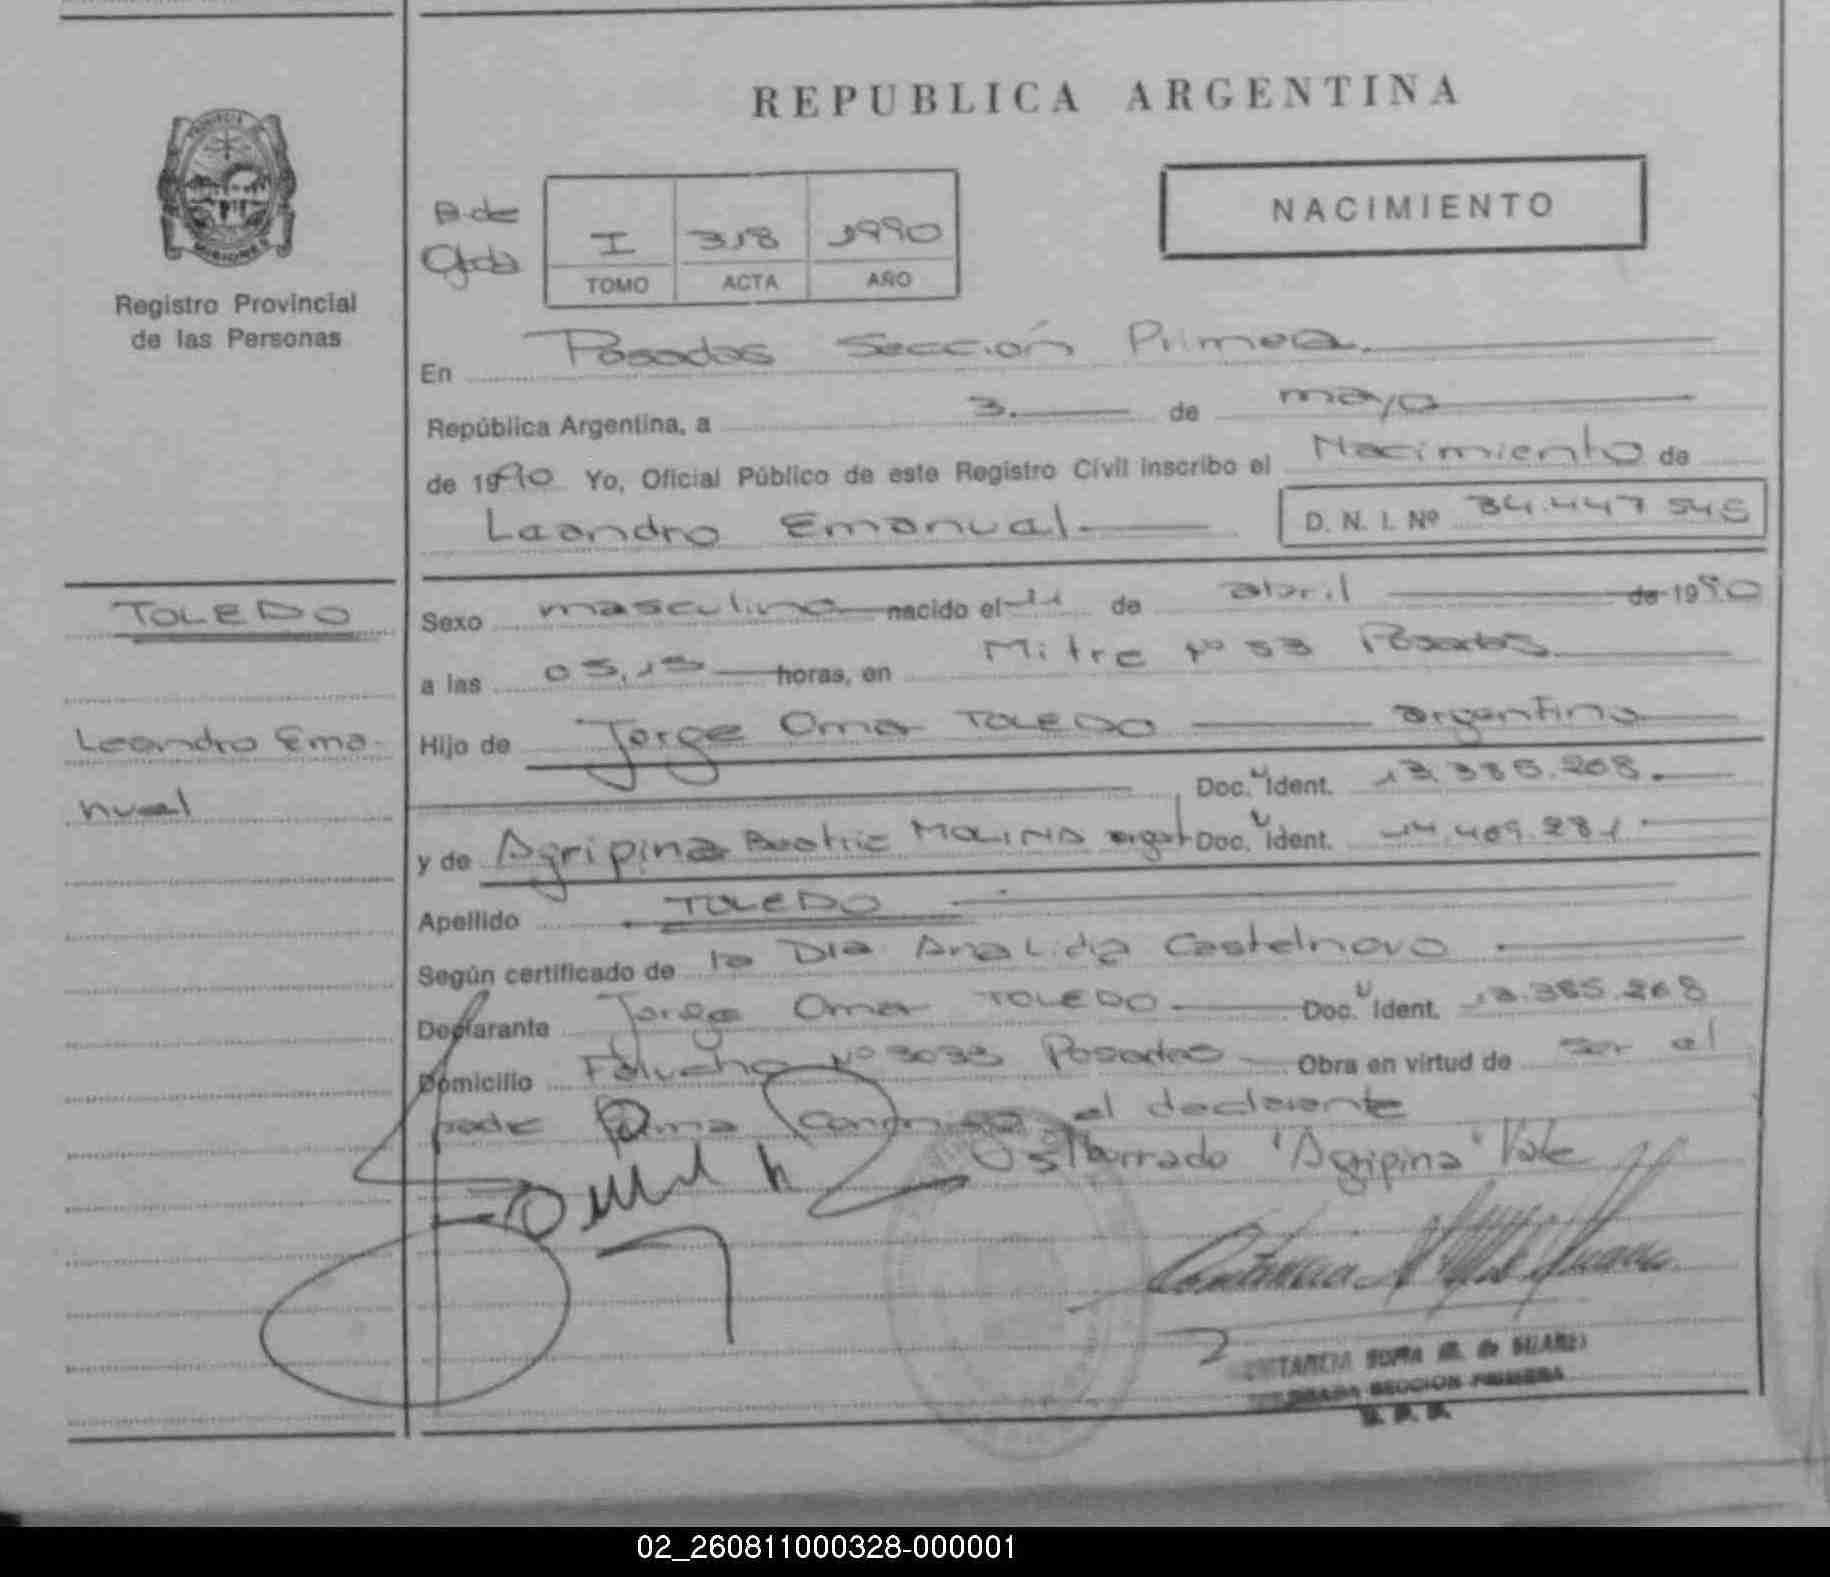 REPUBLICA ARGENTINA
PROVINCIA DE MISIONES
Registro Provincial
de las Personas
NACIMIENTO
I 318 1990
TOMO ACTA AÑO
En Posadas Sección Primera
República Argentina, a 3 de mayo
de 1990 Yo, Oficial Público de este Registro Civil inscribo el Nacimiento de
Leandro Emanuel D. N. I. Nº 34.447.545
TOLEDO
Leandro Ema-
nuel
Sexo masculino nacido el 11 de abril de 1990
a las 05,15 horas, en Mitre Nº 53 Posadas
Hijo de Jorge Omar TOLEDO argentino
Doc. Ident. 13.385.268.
y de Agripina Beatriz MOLINA argent Doc. Ident. 14.469.281
Apellido TOLEDO
Según certificado de la Dra Ana Lidia Castelnovo
Declarante Jorge Omar TOLEDO Doc. Ident. 13.385.268
Domicilio Falucho Nº 3033 Posadas Obra en virtud de ser el
padre firma conmigo el declarante
S/borrado "Agripina" Vale
SOFIA M. de SUAREZ
SECCION PRIMERA
02_260811000328-000001